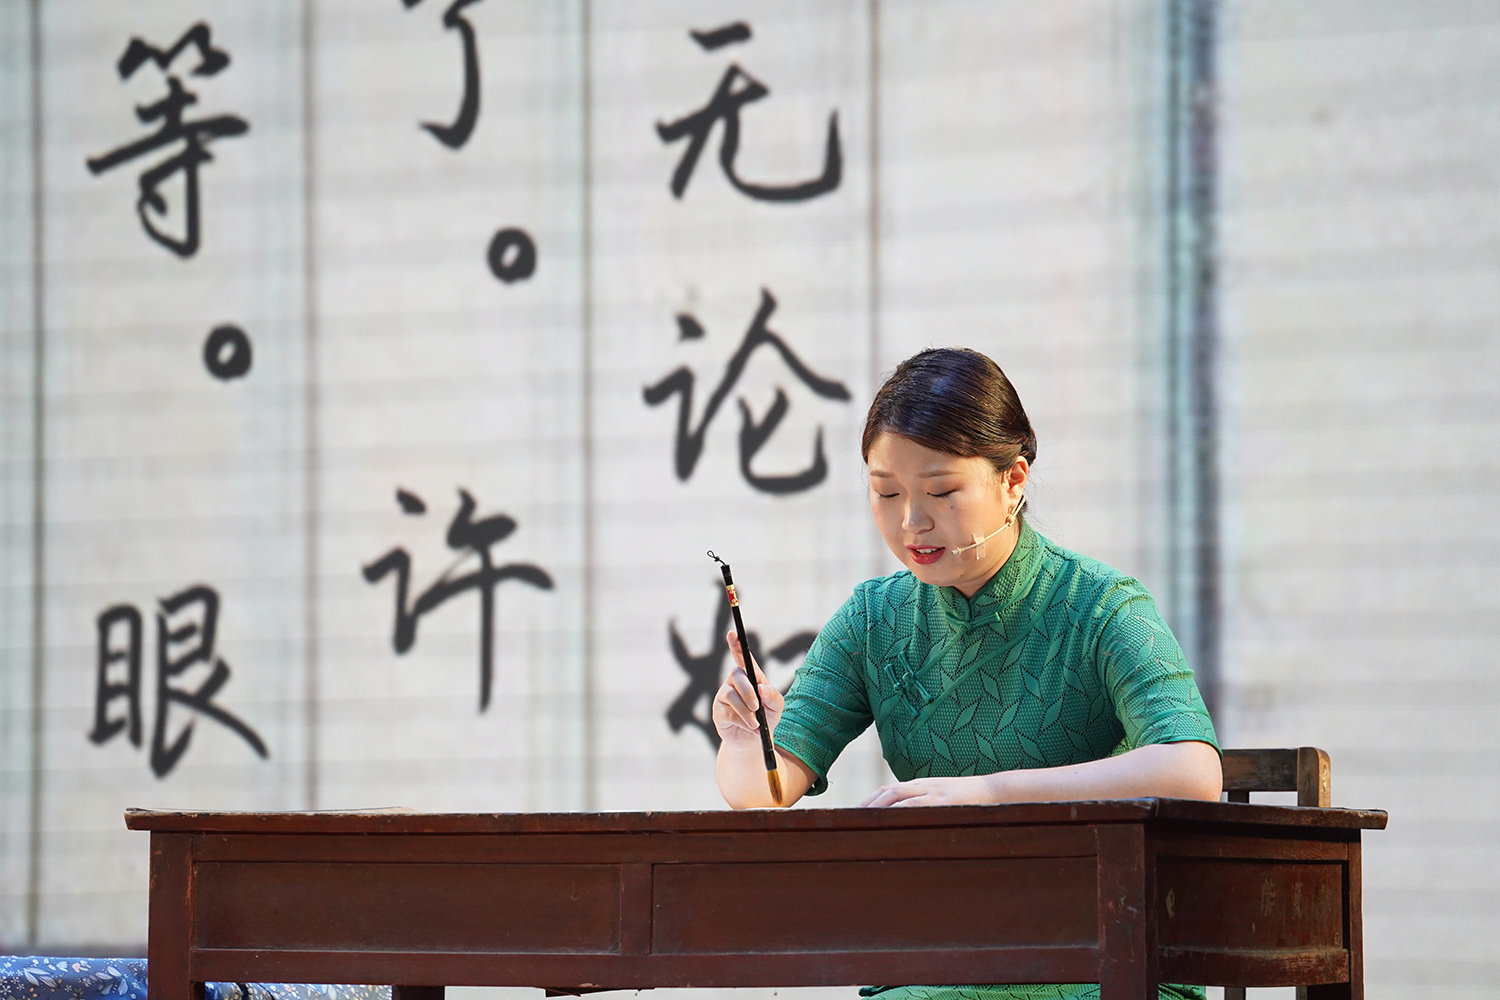 无论如
了。许
等。眼